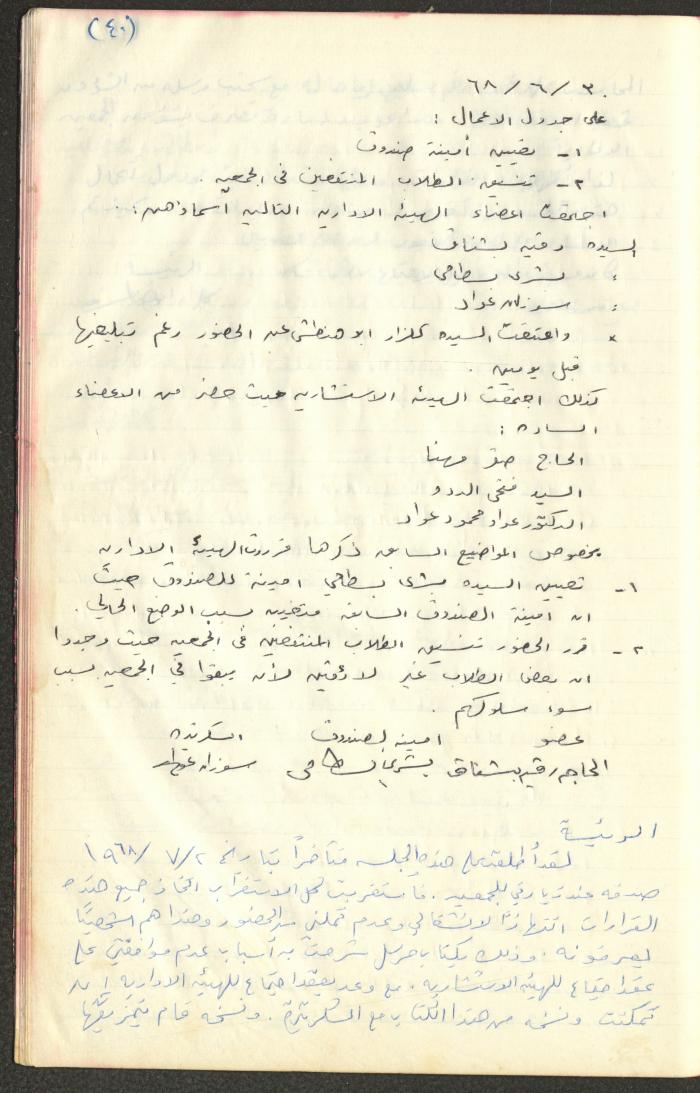 (٤٠)
٣٠/٦/٦٨
على جدول الاعمال :
١- تعيين أمينة صندوق
٢- تنسيق الطلاب المنتفعين في الجمعيه .
اجتمعت اعضاء الهيئه الاداريه التاليه أسماؤهن :
السيده رقيه بشناق
: بشرى بسطامي
: سوزان عواد
× واعتقت السيده كلزار ابو هنطش عن الحضور رغم تبليغها
قبل يومين .
كذلك اجتمعت الهيئه الاستشاريه حيث حضر من الاعضاء
الساده :
الحاج مهنا
السيد فتحي الددو
الدكتور عواد محمود عواد
بخصوص المواضيع السابق ذكرها قررت الهيئه الاداريه
١- تعيين السيده بشرى بسطامي امينة للصندوق حيث
ان امينة الصندوق السابقه متغيبه بسبب الوضع الحالي .
٢- قرر الحضور تنسيق الطلاب المنتفعين في الجمعيه حيث وجدوا
ان بعض الطلاب غير لائقين لأن يبقوا في الجمعيه بسبب
سوء سلوكهم .
عضو امينه الصندوق السكرتيره
الحاجه رقيه بشناق بشرى بسطامي سوزان عواد
الرئيسة
لقد أطلعت على هذه الجلسه متأخراً بتاريخ ٢/٧/١٩٦٨
صدفه عند زيارتي للجمعيه . فاستغربت كل الاستغراب اتخاذ جميع هذه
القرارات انتهازاً لانشغالي وعدم تمكني من الحضور وهذا هم شخصياً
يعرفونه . وذلك بكتاب مرسل شرحت به أسباب عدم موافقتي على
عقد اجتماع للهيئه الاستشاريه . مع وعد بعقد اجتماع للهيئه الاداريه إن
تمكنت ونسخه من هذا الكتاب مع السكرتيرة . ونسخه قام بتمزيقها